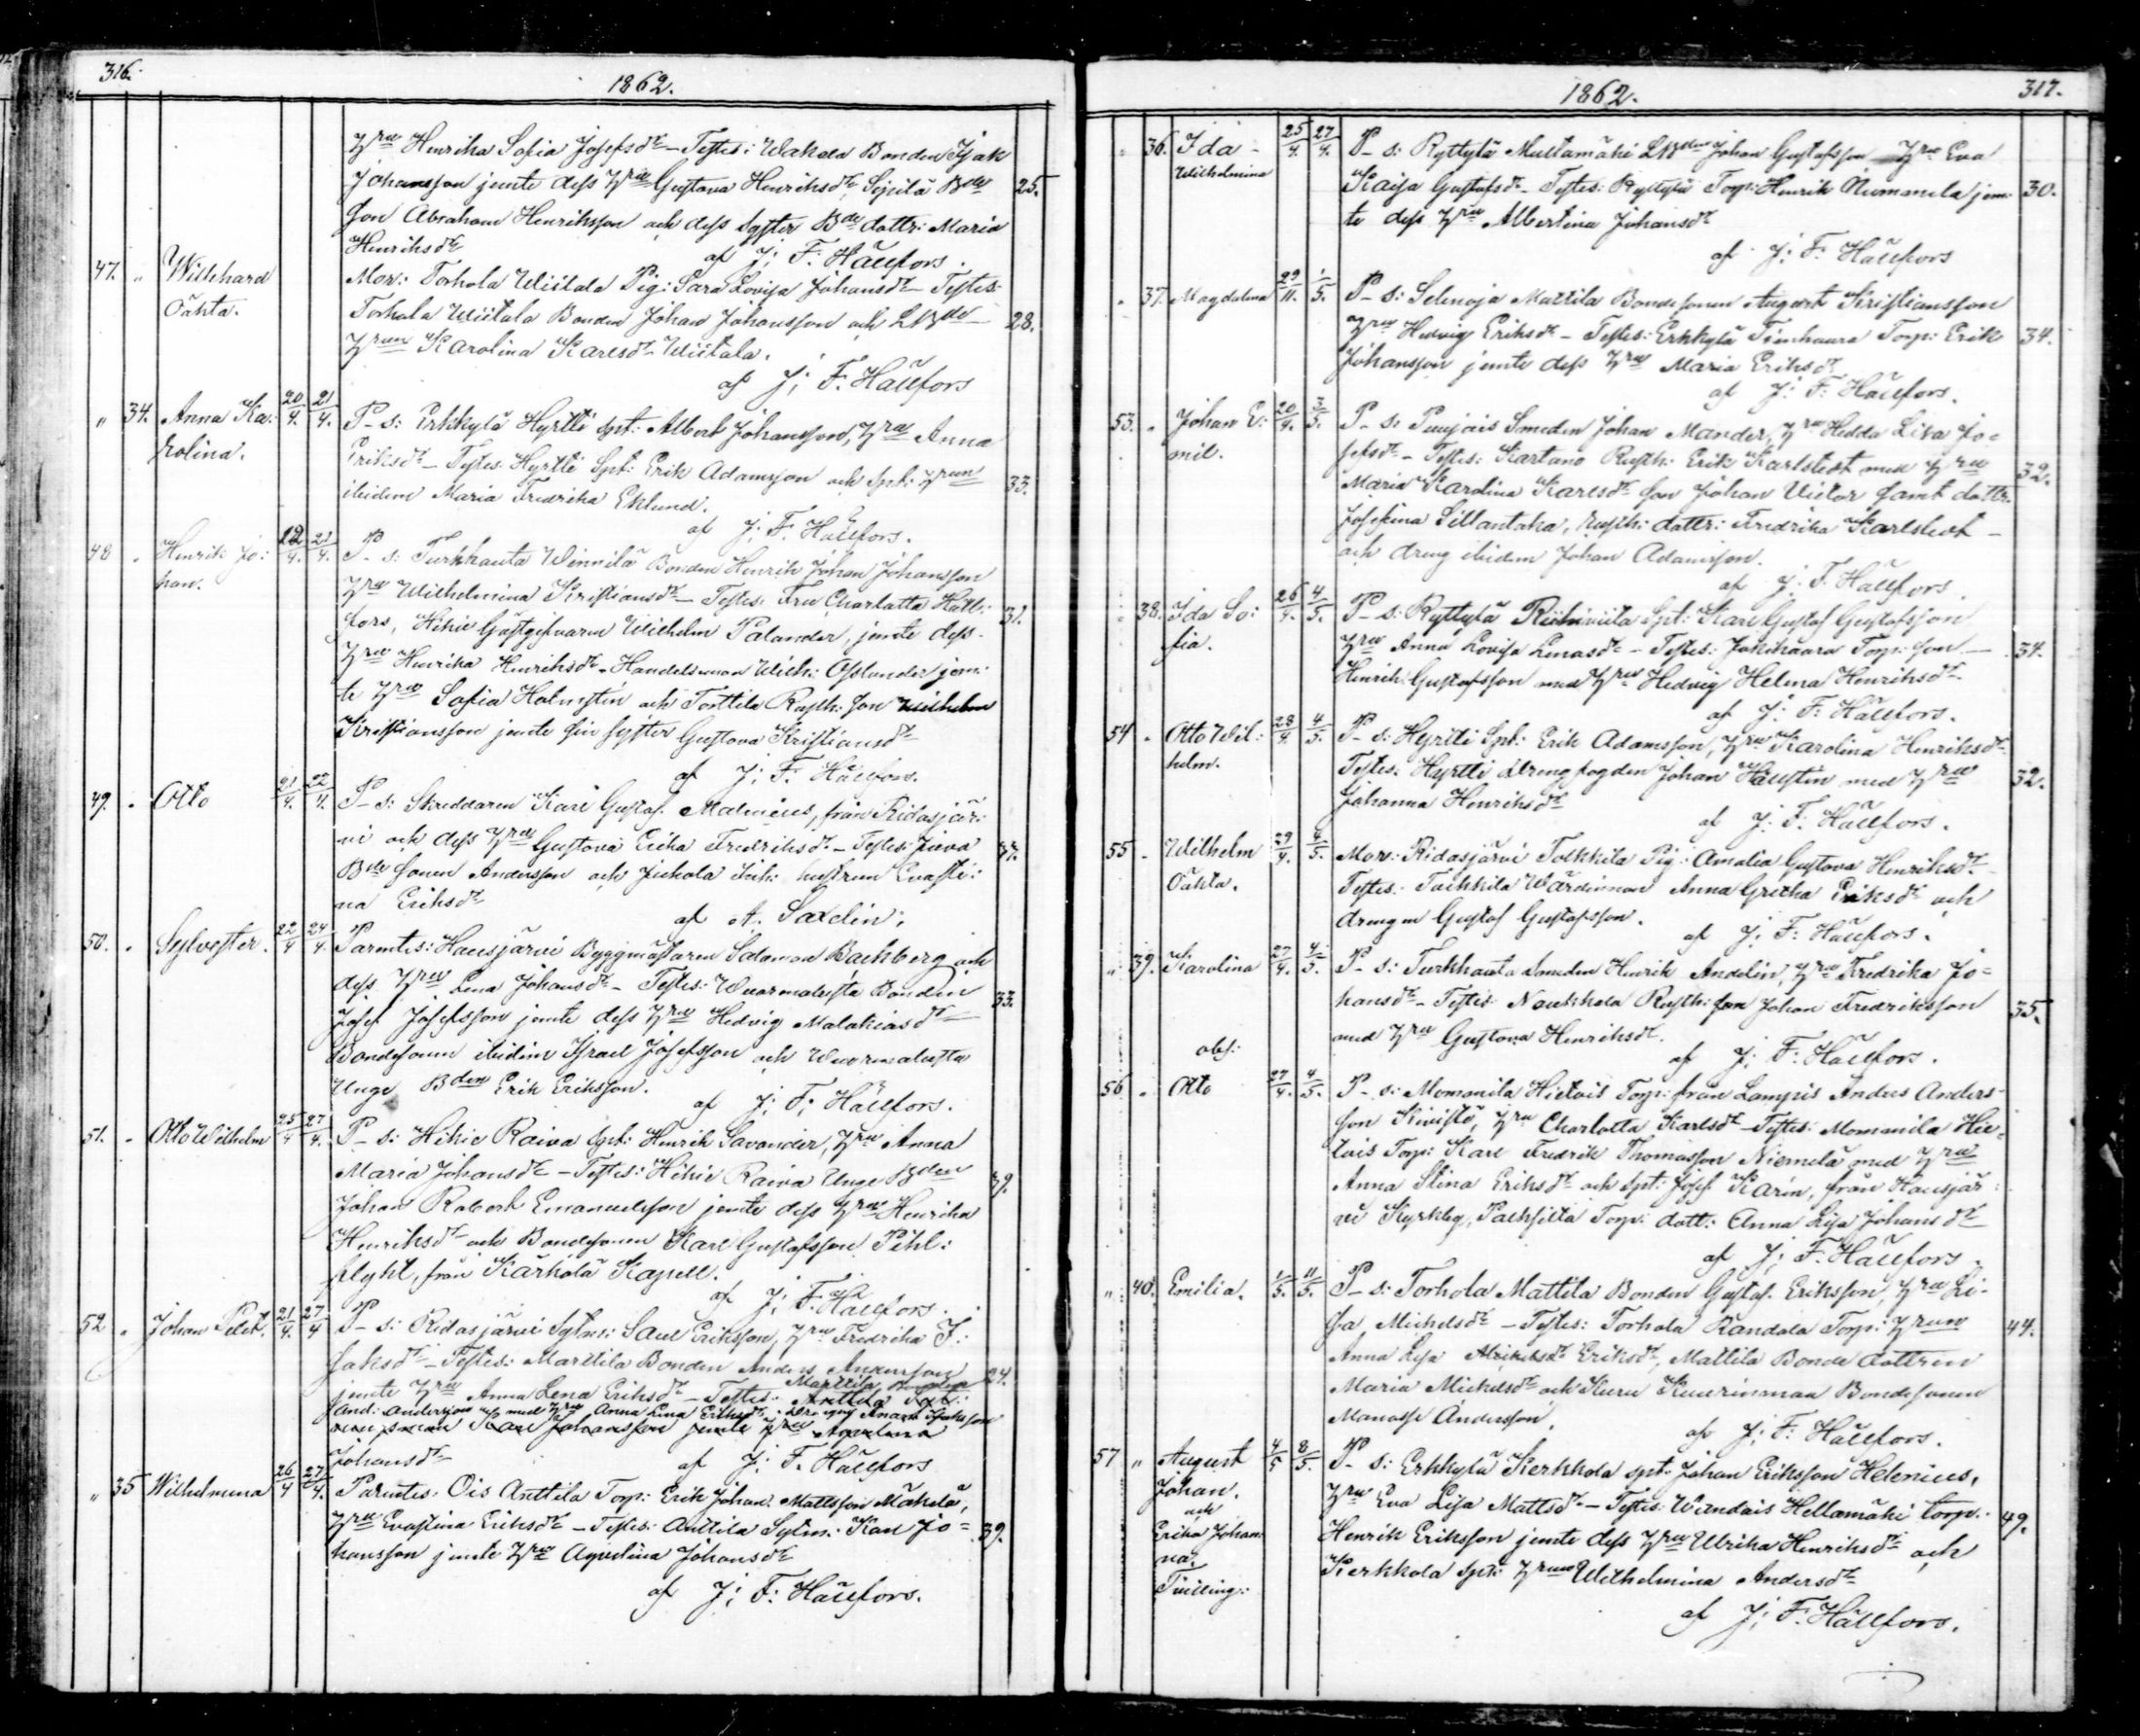 316.
1862.
Hru Henrika Sofia Josefsdr – Testes: Wakola Bonden Isak
Johansson jemte dess Hru Gustava Henriksdr, Sipilä Bde 25.
son Abraham Henriksson och dess syster Bde dottr: Maria
Henriksdr
af J: F: Hällfors.
47. " Willehard Mor: Torhola Wiitala Pig: Sara Lovisa Johansdr – Testes:
Oäkta. Torhola Wiitala Bonden Johan Johansson och LBde 28.
Hrun Karolina Karlsdr Wiitala.
af J: F: Hällfors
" 34. Anna Ka: 20/4. 21/4. P – s: Erkkylä Hyrtti Spt: Albert Johansson, Hru Anna
rolina. Eriksdr – Testes: Hyrtti Spt: Erik Adamsson och Spt: Hrun 33.
ibidem Maria Fredrika Eklund.
af J: F: Hällfors.
48 " Henrik Jo: 19/4. 21/4. P – s: Turkhauta Winnilä Bonden Henrik Johan Johansson
han. Hru Wilhelmina Kristiansdr – Testes: Fru Charlotta Häll: 31.
fors, Hikiä Gästgifvaren Wilhelm Palander, jemte dess
Hru Henrika Henriksdr – Handelsman Wilh: Osslander jem:
te Hru Sofia Holmstén och Torttila Rusth: son Wilhelm
Kristiansson jemte sin syster Gustava Kristiansdr
af J: F: Hällfors.
49. " Otto 21/4. 22/4. P – s: Skreddaren Karl Gustaf Malenius, från Ridasjär:
vi och dess Hru Gustava Erika Fredriksdr – Testes: 37.
Bde sonen Andersson och Jickola hustrun Evasti:
na Eriksdr
af A. Saxelin.
50. " Sylvester. 22/4 24/4. Parentes: Hausjärvi Byggmästaren Salomon Bachberg och
dess Hru Lena Johansdr – Testes: Wuormalusta Bonden 33.
Josef Josefsson jemte dess Hru Hedvig Malakiasdr
Bondesonen ibidem Israel Josefsson och Wuormalusta
Unge Bden Erik Eriksson.
af J: F: Hällfors.
51. " Otto Wilhelm 25/4 27/4. P – s: Hikiä Raiva Spt: Henrik Savander, Hru Anna
Maria Johansdr – Testes: Hikiä Raiva Unge Bden 39.
Johan Robert Emanuelsson jemte dess Hru Henrika
Henriksdr och Bondesonen Karl Gustafsson Pihl:
flykt, från Kärkölä Kapell.
af J: F: Hällfors.
52 " Johan Petet. 21/4. 27/4 P – s: Ridasjärvi Sytm: Saul Eriksson, Hru Fredrika I:
saksdr – Testes: Marttila Bonden Anders Andersson 24.
jemte Hru Anna Lena Eriksdr – Testes: Marttila
And: Andersson med Hru Anna Lena Eriksdr:
Karl Johansson jemte Hru Agustina
Johansdr
af J: F: Hällfors
" 35 Wilhelmina 26/4 27/4. Parentes: Ois Anttila Torp: Erik Johan Mattsson Mäkelä,
Hru Evastina Eriksdr – Testes: Anttila Sytm: Karl Jo= 39.
hansson jemte Hru Agustina Johansdr
af J: F: Hällfors.
1862.
317.
" 36. Ida – 25/4. 27/4. P – s: Ryttylä Multamäki LBden Johan Gustafsson Hru Eva
Wilhelmina Kaisa Gustafsdr – Testes: Ryttylä Torp: Henrik Nummela jem: 30.
te dess Hru Albertina Johansdr
af J: F: Hällfors
" 37. Magdalena 29/4. 1/5. P – s: Selenoja Mattila Bondesonen August Kristiansson
Hru Hedvig Eriksdr – Testes: Erkkylä Torp: Erik 34.
Johansson jemte dess Hru Maria Eriksdr
af J: F: Hällfors.
53. " Johan E: 20/4. 3/5. P – s: Puujais Smeden Johan Mander, Hru Hedda Lisa Jo=
mil. sefsdr – Testes: Kartano Rusth: Erik Karlstedt med Hru 32.
Maria Karolina Karlsdr son Johan Victor samt dottr:
Josefina Sillantaka, Rusth: dottr: Fredrika Karlstedt –
och dreng ibidem Johan Adamsson.
af J: F: Hällfors.
" 38. Ida So: 26/4. 4/5. P – s: Ryttylä Riihiviita Spt: Karl Gustaf Gustafsson
fia. Hru Anna Lovisa Lenasdr – Testes: Torp: son 34.
Henrik Gustafsson med Hru Hedvig Helena Henriksdr
af J: F: Hällfors.
54 " Otto Wil: 28/4. 4/5. P – s: Hyrtti Spt: Erik Adamsson, Hru Karolina Henriksdr
helm. Testes: Hyrtti Drengfogden Johan Hällstén med Hru 32.
Johanna Henriksdr
af J: F: Hällfors.
55 " Wilhelm 29/4. 4/5. Mor: Ridasjärvi Tolkkila Pig: Amalia Gustava Henriksdr
Oäkta. Testes: Tolkkila Wärdinnan Anna Gretha Eriksdr och
drengen Gustaf Gustafsson.
af J: F: Hällfors.
" 39. Karolina 27/4. 4/5. P – s: Turkhauta Smeden Henrik Andelin, Hru Fredrika Jo=
hansdr – Testes: Naukkola Rusth: son Johan Fredriksson 35.
med Hru Gustava Henriksdr.
af J: F: Hällfors.
obs:
56 " Otto 27/4. 4/5. P – s: Mommila Hietois Torp: från Lampis Anders Anders
son Kivistö, Hru Charlotta Karlsdr – Testes: Mommila Hie:
tois Torp: Karl Fredrik Thomasson Niemelä med Hru
Anna Stina Eriksdr och Spt: Josef Karin, från Hausjär:
vi Kyrkby, Torp: dott: Anna Lisa Johansdr
af J: F: Hällfors.
" 40. Emilia. 1/5. 11/5. P – s: Torhola Mattila Bonden Gustaf Eriksson, Hru Li-
sa Michelsdr – Testes: Torhola Randala Torp: Hrun 44.
Anna Lisa Michelsdr Eriksdr, Mattila Bonde dottren
Maria Michelsdr och Kuru Bondesonen
Manasse Andersson.
af J: F: Hällfors.
57 " August 4/5 8/5. P – s: Erkkylä Kerkkola spt: Johan Eriksson Helenius,
Johan. Hru Eva Lisa Mattsdr – Testes: Wandais Hellamäki torp: 49.
och Henrik Eriksson jemte dess Hru Ulrika Henriksdr och
Erika Johan: Kerkkola spt: Hrun Wilhelmina Andersdr
na.
Tvilling:
af J: F: Hällfors.